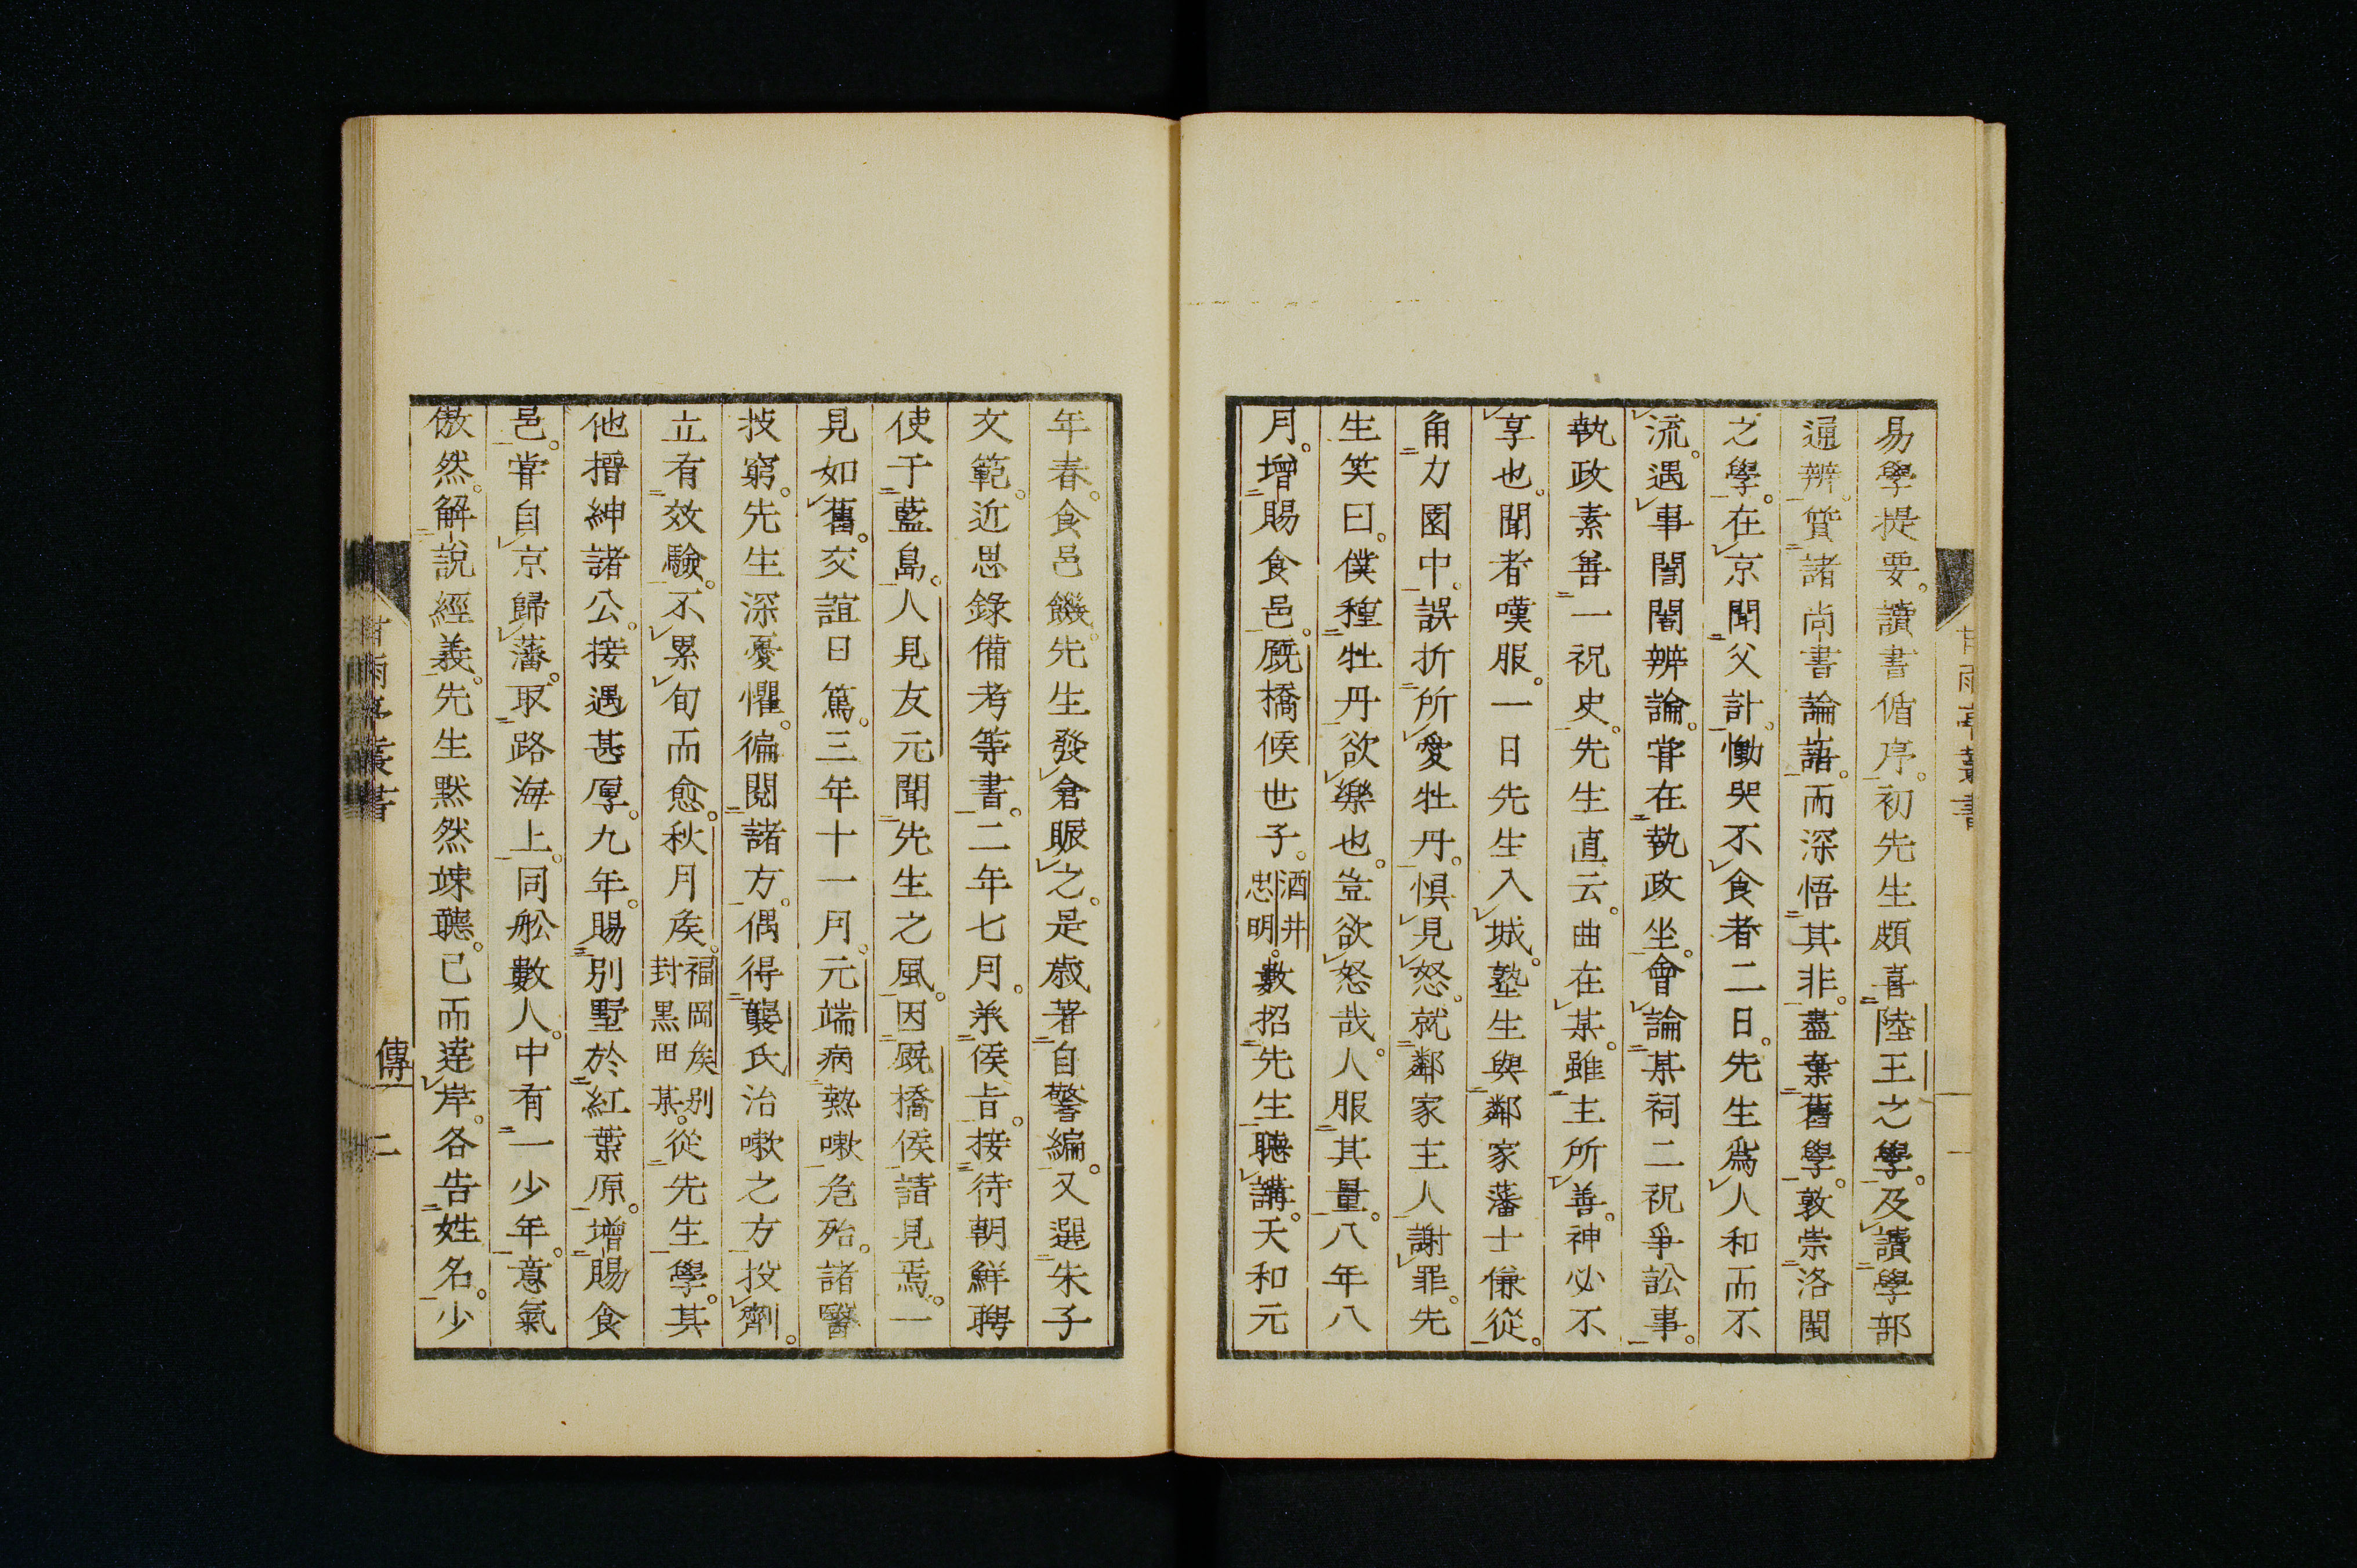 易學提要。讀書循序。初先生頗喜陸王之學。及讀學部
通辨。質諸尚書論語。而深悟其非。盡棄舊學。敦崇洛閩
之學。在京聞父計。慟哭不食者二日。先生爲人和而不
流。遇事誾誾辨論。甞在執政坐。會論某祠二祝爭訟事。
執政素善一祝史。先生直云。曲在某。雖主所善。神必不
享也。聞者嘆服。一日先生入城。塾生與鄰家藩士傔從。
角力園中。誤折所愛牡丹。惧見怒。就鄰家主人謝罪。先
生笑曰。僕種牡丹欲樂也。豈欲怒哉。人服其量。八年八
月。增賜食邑。厩橋侯世子。酒井忠明。數招先生聽講。天和元
年春。食邑饑。先生發倉賑之。是歲著自警編。又選朱子
文範。近思錄備考等書。二年七月。承侯旨。接待朝鮮聘
使于藍島。人見友元聞先生之風。因厩橋侯請見焉。一
見如舊。交誼日篤。三年十一月。元端病熱嗽危殆。諸醫
技窮。先生深憂懼。徧閱諸方。偶得龔氏治嗽之方投劑。
立有效驗。不累旬而愈。秋月矦。福岡矦別封黒田某。從先生學。其
他搢紳諸公。接遇甚厚。九年。賜別墅於紅葉原。增賜食
邑。甞自京歸藩。取路海上。同舩數人。中有一少年。意氣
傲然。解說經義。先生默然竦聽。已而達岸。各告姓名。少
甘雨亭叢書
傳
二